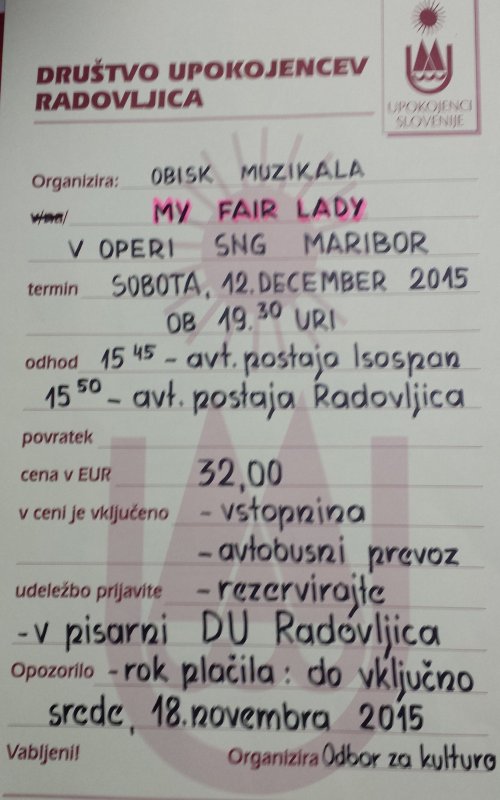 DRUŠTVO UPOKOJENCEV
RADOVLJICA
UPOKOJENCI
SLOVENIJE
Organizira: OBISK MUZIKALA
v/na/ MY FAIR LADY
V OPERI SNG MARIBOR
termin SOBOTA, 12. DECEMBER 2015
OB 19.30 URI
odhod 15 45 - avt. postaja Isospan
15 50 - avt. postaja Radovljica
povratek
cena v EUR 32,00
v ceni je vključeno - vstopnina
- avtobusni prevoz
udeležbo prijavite - rezervirajte
- v pisarni DU Radovljica
Opozorilo - rok plačila: do vključno
srede, 18. novembra 2015
Vabljeni! Organizira Odbor za kulturo